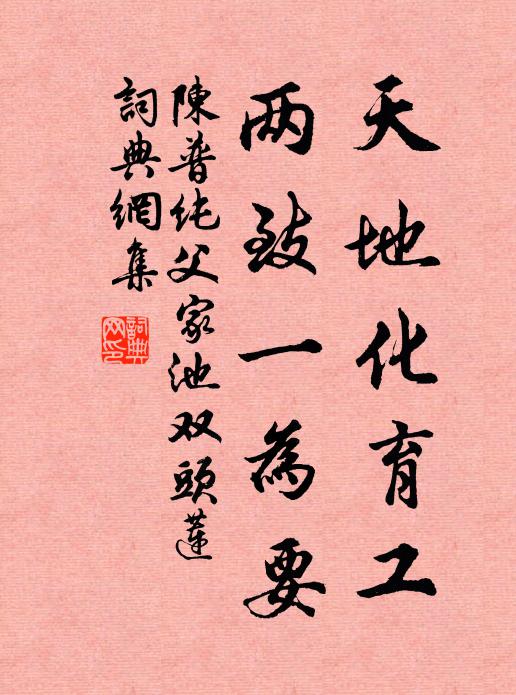 天地化育工
两致一為要
陳普纯父家池双頭蓮
詞典網集
詞典
网印